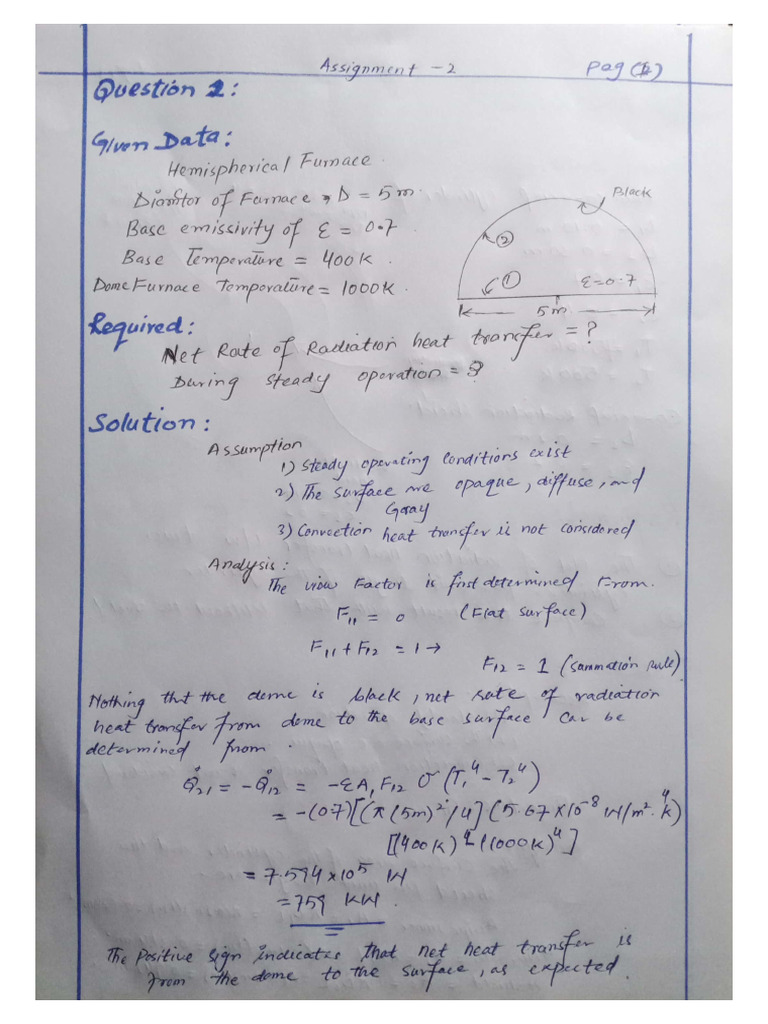 Assignment - 2
Pag (1)
Question 1:
Given Data:
Hemispherical Furnace.
Diamtor of Furnace, D = 5m.
Base emissivity of ε = 0.7
Base Temperature = 400K.
Dome Furnace Temporature = 1000K.
Black
②
① ε=0.7
5m
Required:
Net Rate of Radiation heat transfer = ?
During steady operation = ?
Solution:
Assumption
1) Steady operating Conditions exist
2) The surface are opaque, diffuse, and
Gray
3) Convection heat transfer is not considered
Analysis:
The view Factor is first determined From.
F₁₁ = 0 (Flat surface)
F₁₁ + F₁₂ = 1 →
F₁₂ = 1 (Summation rule).
Nothing tht the dome is black, net rate of radiation
heat transfer from dome to the base surface Can be
determined from.
Q̇₂₁ = -Q̇₁₂ = -εA₁F₁₂ σ(T₁⁴ - T₂⁴)
= -(0.7)[(π(5m)²/4](5.67×10⁻⁸ W/m².K⁴)
[(400K)⁴-(1000K)⁴]
= 7.594×10⁵ W
= 759 KW.
The Positive sign indicates that net heat transfer is
from the dome to the surface, as expected.